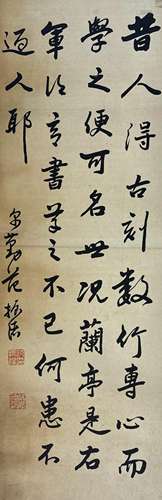 昔人得古刻數行專心而
學之便可名世況蘭亭是右
軍得意書學之不已何患不
過人耶